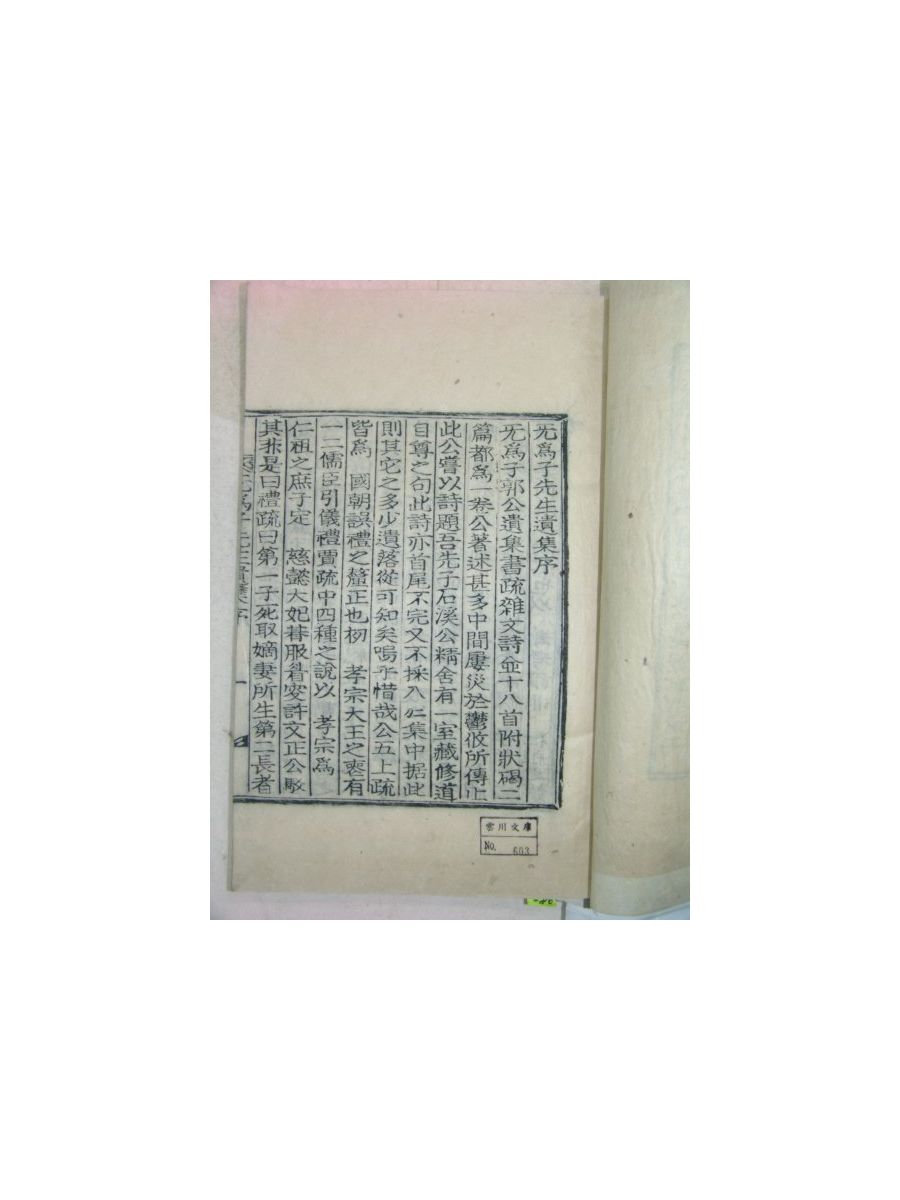 无爲子先生遺集序
无爲子郭公遺集書疏雜文詩並十八首附狀碣二
篇都爲一卷公著述甚多中間屢災於鬱攸所傳止
此公嘗以詩題吾先子石溪公精舍有一室藏修道
自尊之句此詩亦首尾不完又不採入於集中据此
則其它之多少遺落從可知矣嗚乎惜哉公五上疏
皆爲 國朝誤禮之釐正也初 孝宗大王之喪有
一二儒臣引儀禮賈疏中四種之說以 孝宗爲
仁祖之庶子定 慈懿大妃朞服眉叟許文正公駁
其非是曰禮疏曰第一子死取嫡妻所生第二長者
无爲子先生遺集序
一
雲川文庫
No. 603